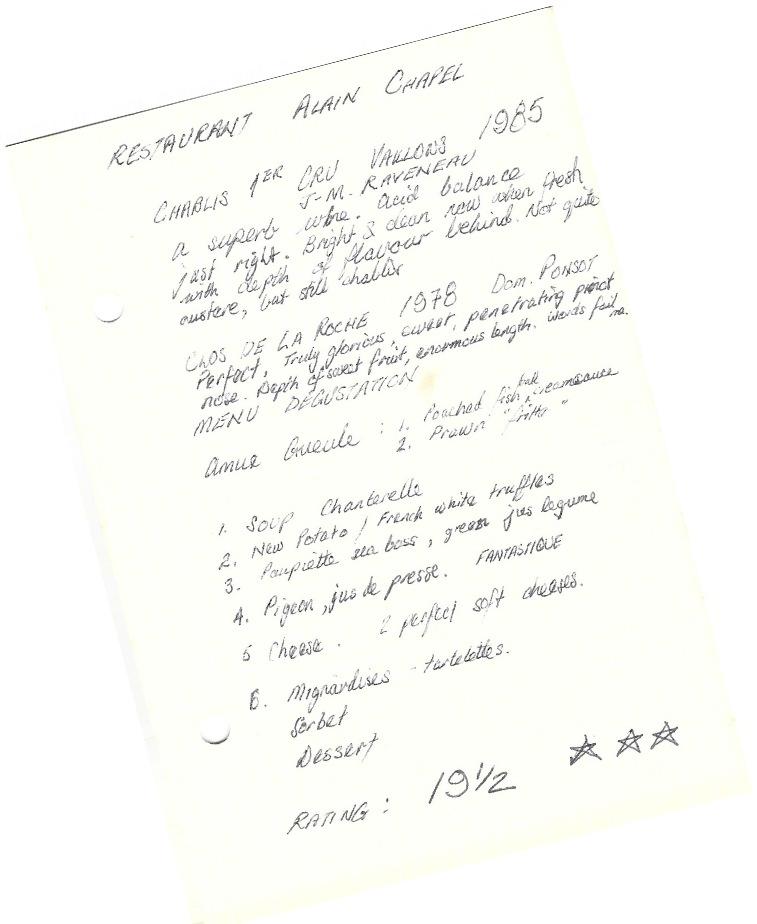 RESTAURANT ALAIN CHAPEL
CHABLIS 1ER CRU VAILLONS 1985
J-M. RAVENEAU
a superb wine. acid balance
just right. Bright & clean now when fresh
with depth of flavour behind. Not quite
austere, but still chablis
CLOS DE LA ROCHE 1978 Dom. PONSOT
Perfect, Truly glorious, sweet, penetrating pinot
nose. Depth of sweet fruit, enormous length. Words fail me.
MENU DÉGUSTATION
Amuse Gueule : 1. Poached fish ball, creamsauce
2. Prawn "fritto"
1. SOUP Chanterelle
2. New Potato / French white truffles
3. Paupiette sea bass, green jus legume
4. Pigeon, jus de presse. FANTASTIQUE
5 Cheese. 2 perfect soft cheeses.
6. Mignardises - tartelettes.
Sorbet
Dessert
RATING : 19 1/2 ☆ ☆ ☆